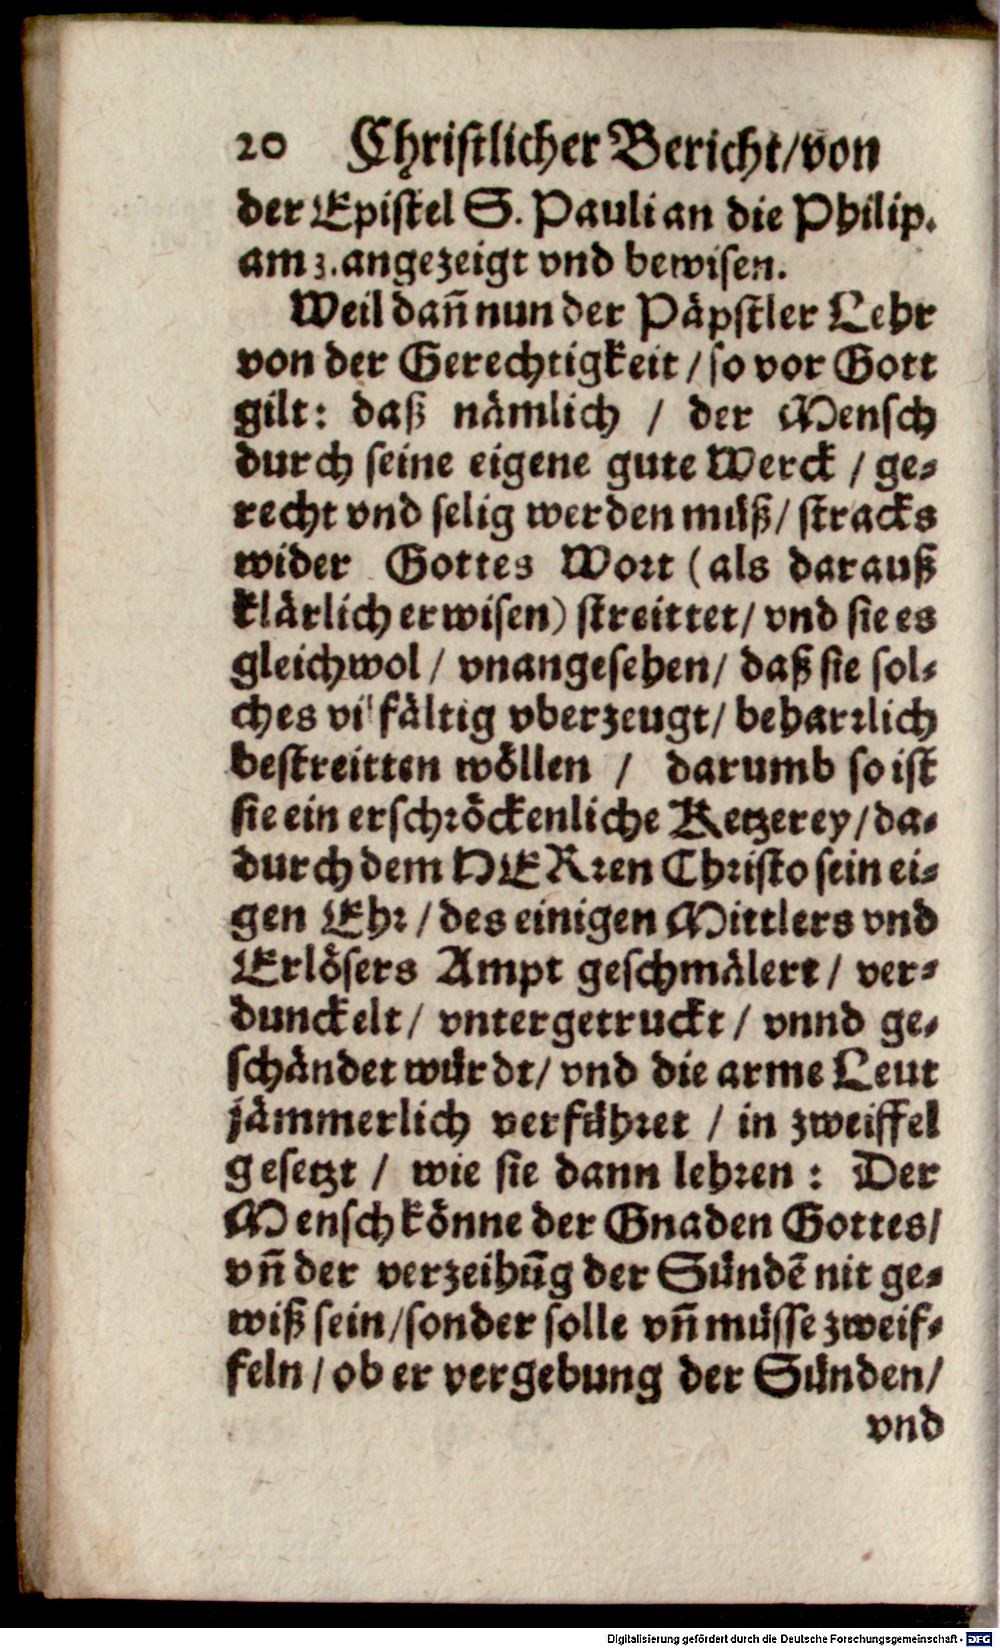 20 Christlicher Bericht/von
der Epistel S. Pauli an die Philip.
am 3. angezeigt vnd bewisen.
Weil dañ nun der Päpstler Lehr
von der Gerechtigkeit / so vor Gott
gilt: daß nämlich / der Mensch
durch seine eigene gute Werck / ge-
recht vnd selig werden müß / stracks
wider Gottes Wort (als darauß
klärlich erwisen) streittet / vnd sie es
gleichwol / vnangesehen / daß sie sol-
ches vilfältig vberzeugt / beharrlich
bestreitten wöllen / darumb so ist
sie ein erschröckenliche Ketzerey / da-
durch dem HERren Christo sein ei-
gen Ehr / des einigen Mittlers vnd
Erlösers Ampt geschmälert / ver-
dunckelt / vntergetruckt / vnnd ge-
schändet würdt / vnd die arme Leut
jämmerlich verführet / in zweiffel
gesetzt / wie sie dann lehren: Der
Mensch könne der Gnaden Gottes /
vñ der verzeihũg der Sündẽ nit ge-
wiß sein / sonder solle vñ müsse zweif-
feln / ob er vergebung der Sünden /
vnd
Digitalisierung gefördert durch die Deutsche Forschungsgemeinschaft - DFG